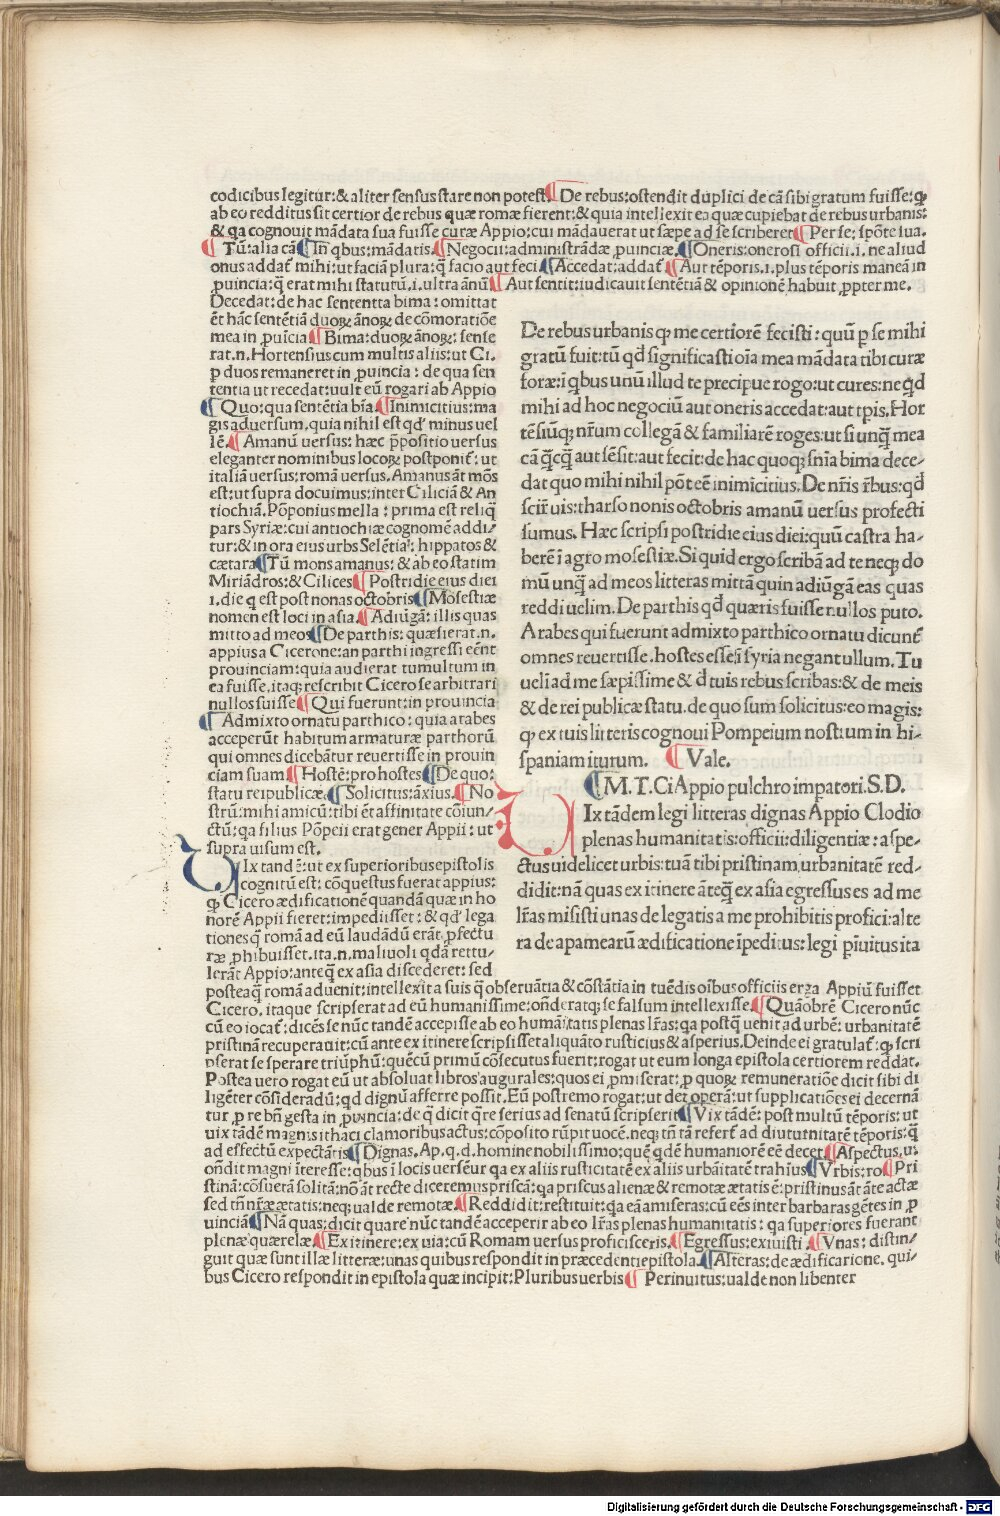 codicibus legitur:& aliter sensus stare non potest. De rebus:ostendit duplici de cā sibi gratum fuisse:ꝙ
ab eo redditus sit certior de rebus quæ romæ fierent:& quia intellexit ea quæ cupiebat de rebus urbanis:
& qa cognouit mādata sua fuisse curæ Appio:cui mādauerat ut sæpe ad se scriberet Per se: spōte sua.
Tū: alia cā In qbus: mādatis. Negocii: administrādæ ꝓuinciæ. Oneris: onerosi officii.i. ne aliud
onus addat̄ mihi: ut faciā plura: q̄ facio aut feci Accedat: addat̄ Aut tēporis.i. plus tēporis maneā in
ꝓuincia: q̄ erat mihi statutū.i. ultra ānū Aut sentit: iudicauit sentētiā & opinionē habuit ꝓpter me.
Decedat: de hac sententta bima: omittat
ēt hāc sentētiā duoꝝ ānoꝝ de cōmoratiōe
mea in ꝓuicia Bima: duoꝝ ānoꝝ: sense
rat.n. Hortensius cum multis aliis: ut Ci.
ꝑ duos remaneret in ꝓuincia: de qua sen
tentia ut recedat: uult eū rogari ab Appio
Quo: qua sentētia bīa. Inimicitius: ma
gis aduersum, quia nihil est qd' minus uel
lē. Amanū uersus: hæc p̄positio uersus
eleganter nominibus locoꝝ postponit̄: ut
italiā uersus: romā uersus. Amanus āt mōs
est: ut supra docuimus: inter Ciliciā & An
tiochiā. Pōponius mella: prima est reliq̄
pars Syriæ: cui antiochiæ cognomē addi-
tur: & in ora eius urbs Selētia: hippatos &
cætara Tū mons amanus: & ab eo statim
Miriādros: & Cilices Postridie eius diei
i. die q est post nonas octobris Mosestiæ
nomen est loci in asia. Adiūgā: illis quas
mitto ad meos De parthis: quæsierat.n.
appius a Cicerone: an parthi ingressi eēnt
prouinciam: quia audierat tumultum in
ea fuisse. itaqꝫ rescribit Cicero se arbitrari
nullos fuisse Qui fuerunt: in prouincia
Admixto ornatu parthico: quia arabes
acceperūt habitum armaturæ parthorū
qui omnes dicebātur reuertisse in prouin
ciam suam Hostē: pro hostes De quo:
statu reipublicæ. Solicitus: āxius. No
strū: mihi amicū: tibi ēt affinitate cōiun-
ctū: qa filius Pōpeii erat gener Appii: ut
supra uisum est.
UIx tandē: ut ex superioribus epistolis
cognitū est: cōquestus fuerat appius:
ꝙ Cicero ædificationē quandā quæ in ho
norē Appii fieret: impediisset: & qd' lega
tiones q̄ romā ad eū laudādū erāt ꝓfectu
ræ phibuisset. ita.n. maliuoli qdā rettu-
lerāt Appio: anteq̄ ex asia discederet: sed
De rebus urbanis ꝙ me certiorē fecisti: quū ꝑ se mihi
gratū fuit: tū qd̄ significasti oīa mea mādata tibi curæ
foræ: ī qbus unū illud te precipue rogo: ut cures: ne qd
mihi ad hoc negociū aut oneris accedat: aut tpis. Hor
tēsiūqꝫ nr̄um collegā & familiarē roges: ut si unq̄ mea
cā q̄cq̄ aut sēsit: aut fecit: de hac quoqꝫ snīa bima dece-
dat quo mihi nihil pōt eē inimicitius. De nr̄is r̄bus: qd̄
scir̄ uis: tharso nonis octobris amanū uersus profecti
sumus. Hæc scripsi postridie eius diei: quū castra ha-
berē ī agro mosestiæ. Si quid ergo scribā ad te neqꝫ do
mū unq̄ ad meos litteras mittā quin adiūgā eas quas
reddi uelim. De parthis qd̄ quæris fuisse nullos puto.
Arabes qui fuerunt admixto parthico ornatu dicunt̄
omnes reuertisse. hostes esse ī syria negant ullum. Tu
ueli ad me sæpissime & d̄ tuis rebus scribas: & de meis
& de rei publicæ statu. de quo sum solicitus: eo magis:
ꝙ ex tuis litteris cognoui Pompeium nostrum in hi-
spaniam iturum. Vale.
M. T. Ci Appio pulchro impatori. S. D.
UIx tādem legi litteras dignas Appio Clodio
plenas humanitatis: officii: diligentiæ: aspe-
ctus uidelicet urbis: tuā tibi pristinam urbanitatē red-
didit: nā quas ex itinere āteq̄ ex asia egressus es ad me
lr̄as misisti unas de legatis a me prohibitis profici: alte
ra de apamearū ædificatione īpeditus: legi pīuitus ita
postea q̄ romā aduenit: intellexit a suis q̄ obseruātia & cōstātia in tuēdis oībus officiis erga Appiū fuisset
Cicero, itaque scripserat ad eū humanissime: ōnderatqꝫ se falsum intellexisse. Quāobrē Cicero nūc
cū eo iocat̄: dicēs se nūc tandē accepisse ab eo humāitatis plenas lr̄as: qa postq̄ uenit ad urbē: urbanitatē
pristinā recuperauit: cū ante ex itinere scripsisset aliquāto rusticius & asperius. Deinde ei gratulat̄: ꝙ scri
pserat se sperare triūphū: quēcū primū cōsecutus fuerit: rogat ut eum longa epistola certiorem reddat.
Postea uero rogat eū ut absoluat libros augurales: quos ei ꝓmiserat: ꝓ quoꝝ remuneratiōe dicit sibi di
ligēter cōsideradū: qd dignū afferre possit. Eū postremo rogat: ut det operā: ut supplicatiōes ei decernā
tur ꝓ re bn̄ gesta in ꝓuincia: de q̄ dicit q̄re serius ad senatū scripserit Vix tādē: post multū tēporis: ut
uix tādē magnis ithaci clamoribus actus: cōposito rūpit uocē. neqꝫ tn̄ tā refert̄ ad diuturnitatē tēporis: q̄
ad effectū expectātis Dignas. Ap. q. d. homine nobilissimo: quē qdē humaniorē eē decet. Aspectus. u.
ōndit magni īteresse: qbus ī locis uersēur qa ex aliis rusticitatē ex aliis urbāitatē trahīus Vrbis: ro Pri
stinā: cōsuetā solitā: nō āt recte diceremus priscā: qa priscus alienæ & remotæ ætatis ē: pristinus āt āte actæ
sed tn̄ nr̄æ ætatis: neqꝫ ualde remotæ. Reddidit: restituit: qa eā amiseras: cū eēs inter barbaras gētes in ꝓ
uinciā Nā quas: dicit quare nūc tandē acceperir ab eo lr̄as plenas humanitatis: qa superiores fuerant
plenæ quærelæ. Ex itinere: ex uia: cū Romam uersus proficisceris. Egressus: exiuisti. Vnas: distin-
guit quæ sunt illæ litteræ: unas quibus respondit in præcedenti epistola. Alteras: de ædificatione. qui-
bus Cicero respondit in epistola quæ incipit: Pluribus uerbis Perinuitus: ualde non libenter
Digitalisierung gefördert durch die Deutsche Forschungsgemeinschaft - DFG